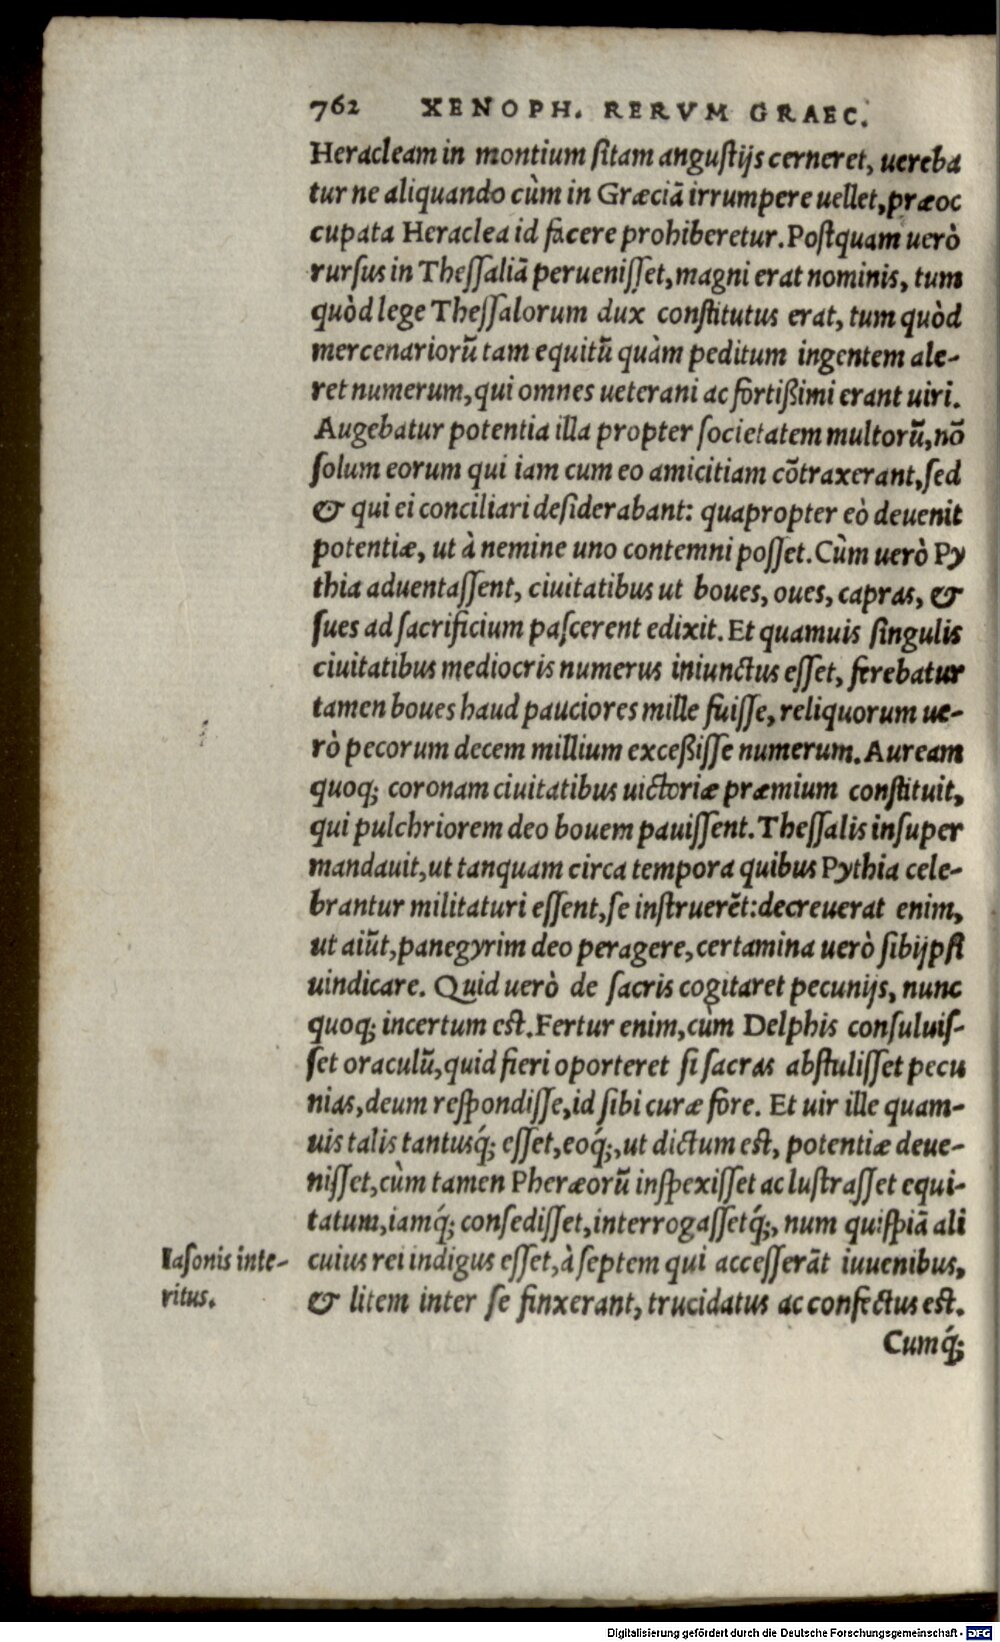 762 XENOPH. RERVM GRAEC.
Heracleam in montium ſitam anguſtijs cerneret, uereba
tur ne aliquando cùm in Græciā irrumpere uellet, præoc
cupata Heraclea id facere prohiberetur. Poſtquam uerò
rurſus in Theſſaliā perueniſſet, magni erat nominis, tum
quòd lege Theſſalorum dux conſtitutus erat, tum quòd
mercenariorū tam equitū quàm peditum ingentem ale-
ret numerum, qui omnes ueterani ac fortißimi erant uiri.
Augebatur potentia illa propter ſocietatem multorū, nō
ſolum eorum qui iam cum eo amicitiam cōtraxerant, ſed
& qui ei conciliari deſiderabant: quapropter eò deuenit
potentiæ, ut à nemine uno contemni poſſet. Cùm uerò Py
thia aduentaſſent, ciuitatibus ut boues, oues, capras, &
ſues ad ſacrificium paſcerent edixit. Et quamuis ſingulis
ciuitatibus mediocris numerus iniunctus eſſet, ferebatur
tamen boues haud pauciores mille fuiſſe, reliquorum ue-
rò pecorum decem millium exceßiſſe numerum. Auream
quoq; coronam ciuitatibus uictoriæ præmium conſtituit,
qui pulchriorem deo bouem pauiſſent. Theſſalis inſuper
mandauit, ut tanquam circa tempora quibus Pythia cele-
brantur militaturi eſſent, ſe inſtruerēt: decreuerat enim,
ut aiūt, panegyrim deo peragere, certamina uerò ſibijpſi
uindicare. Quid uerò de ſacris cogitaret pecunijs, nunc
quoq; incertum eſt. Fertur enim, cùm Delphis conſuluiſ-
ſet oraculū, quid fieri oporteret ſi ſacras abſtuliſſet pecu
nias, deum reſpondiſſe, id ſibi curæ fore. Et uir ille quam-
uis talis tantusq́; eſſet, eoq́;, ut dictum eſt, potentiæ deue-
niſſet, cùm tamen Pheræorū inſpexiſſet ac luſtraſſet equi-
tatum, iamq́; conſediſſet, interrogaſſetq́;, num quiſpiā ali
cuius rei indigus eſſet, à ſeptem qui acceſſerāt iuuenibus,
& litem inter ſe finxerant, trucidatus ac confectus eſt.
Iaſonis inte-
ritus.
Cumq́;
Digitalisierung gefördert durch die Deutsche Forschungsgemeinschaft - DFG